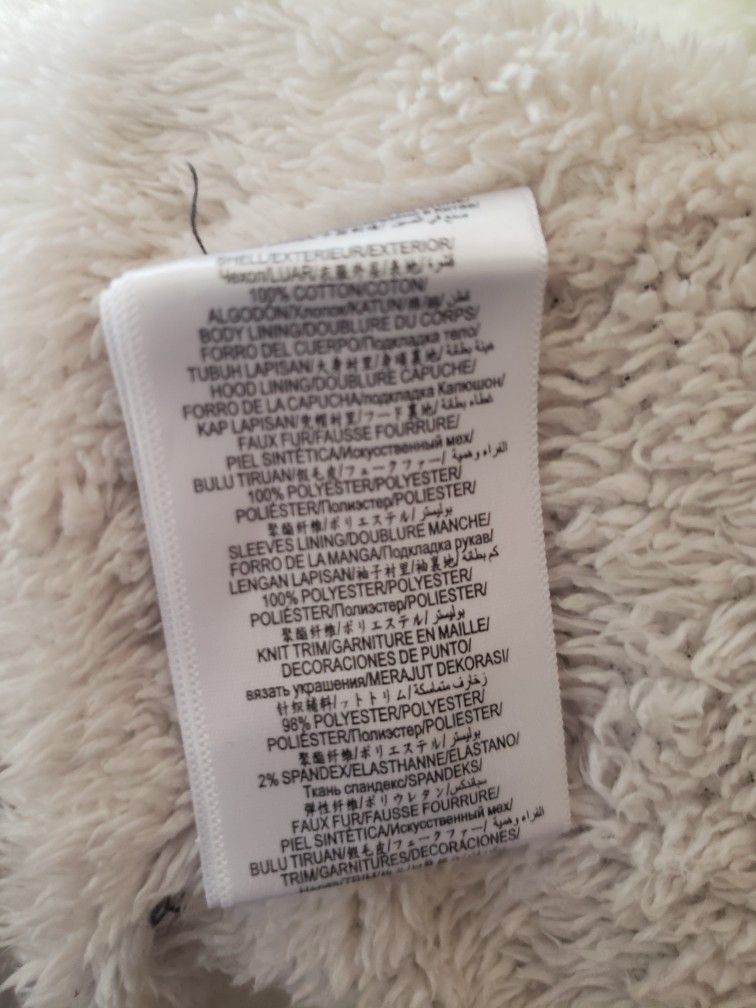 SHELL/EXTERIEUR/EXTERIOR/
Чехол/LUAR/衣服外层/表地/قشرة/
100% COTTON/COTON/
ALGODÓN/Хлопок/KATUN/棉/綿/قطن/
BODY LINING/DOUBLURE DU CORPS/
FORRO DEL CUERPO/Подкладка тело/
TUBUH LAPISAN/大身衬里/身頃裏地/هيئة بطانة/
HOOD LINING/DOUBLURE CAPUCHE/
FORRO DE LA CAPUCHA/подкладка Капюшон/
KAP LAPISAN/兜帽衬里/フード裏地/غطاء بطانة/
FAUX FUR/FAUSSE FOURRURE/
PIEL SINTÉTICA/Искусственный мех/
BULU TIRUAN/假毛皮/フェークファー/الفراء وهمية/
100% POLYESTER/POLYESTER/
POLIÉSTER/Полиэстер/POLIESTER/
聚酯纤维/ポリエステル/بوليستر/
SLEEVES LINING/DOUBLURE MANCHE/
FORRO DE LA MANGA/Подкладка рукав/
LENGAN LAPISAN/袖子衬里/袖裏地/كم بطانة/
100% POLYESTER/POLYESTER/
POLIÉSTER/Полиэстер/POLIESTER/
聚酯纤维/ポリエステル/بوليستر/
KNIT TRIM/GARNITURE EN MAILLE/
DECORACIONES DE PUNTO/
вязать украшения/MERAJUT DEKORASI/
针织辅料/ットトリム/زخارف متماسكة/
98% POLYESTER/POLYESTER/
POLIÉSTER/Полиэстер/POLIESTER/
聚酯纤维/ポリエステル/بوليستر/
2% SPANDEX/ELASTHANNE/ELASTANO/
Ткань спандекс/SPANDEKS/
弹性纤维/ポリウレタン/سباندكس/
FAUX FUR/FAUSSE FOURRURE/
PIEL SINTÉTICA/Искусственный мех/
BULU TIRUAN/假毛皮/フェークファー/الفراء وهمية/
TRIM/GARNITURES/DECORACIONES/